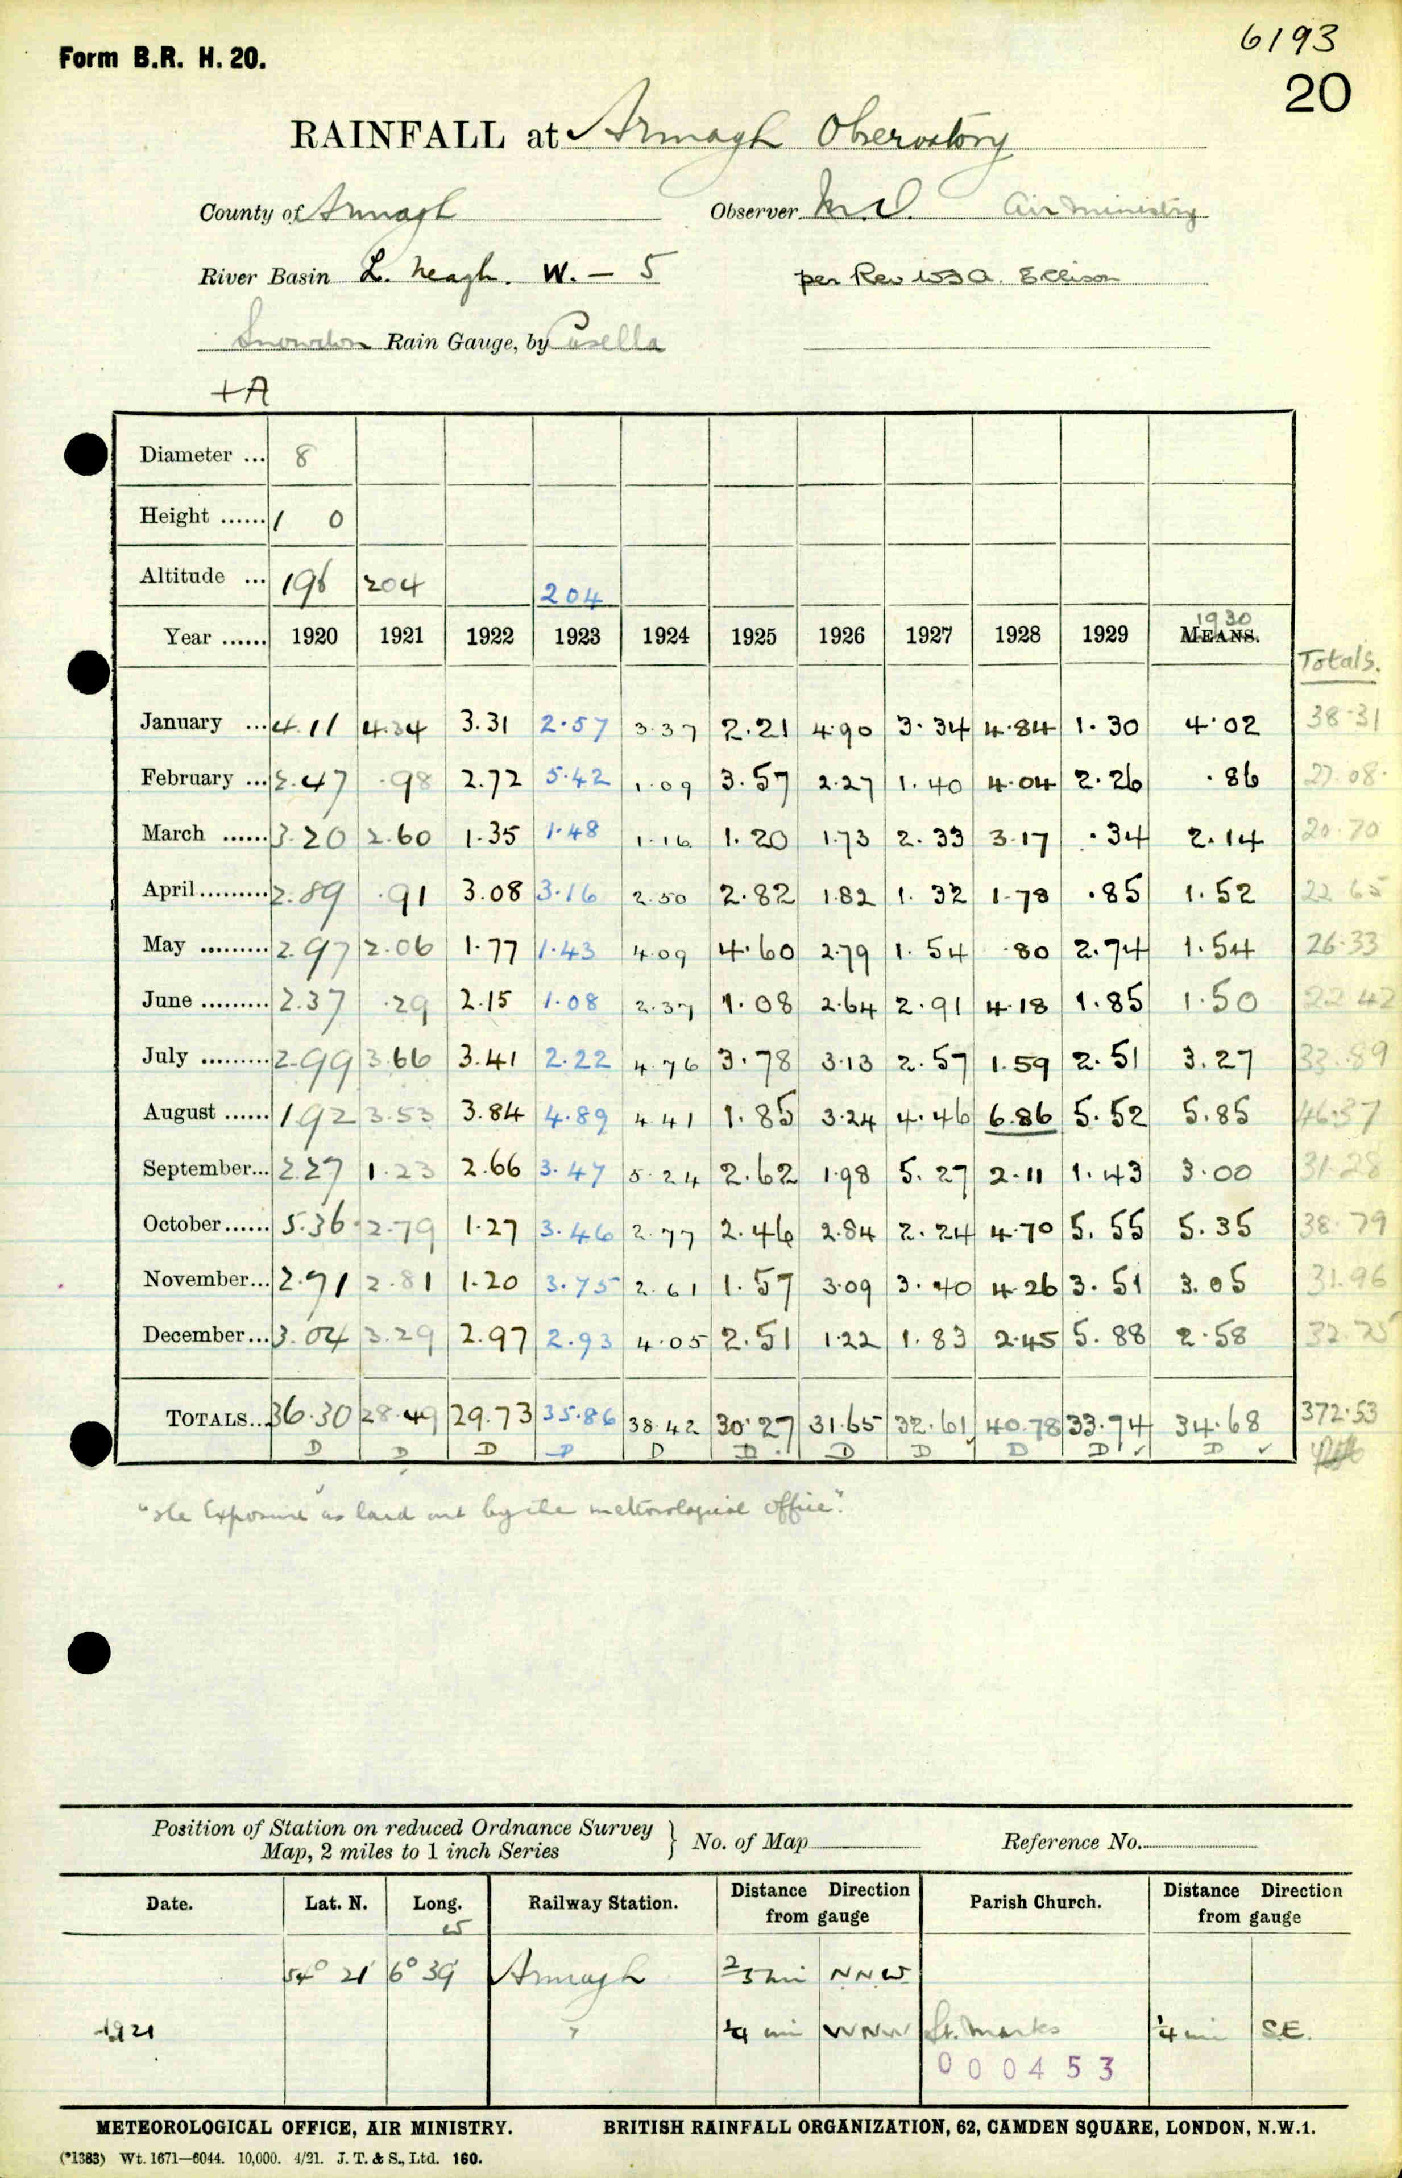 6193
Form B.R. H. 20.
20
RAINFALL at Armagh Observatory
County of Armagh Observer M.O. Air Ministry
River Basin L. Neagh. W. — 5 per Rev W.F.A. Ellison
Snowdon Rain Gauge, by Casella
+A
Diameter ... 8
Height ...... 1 0
Altitude ... 196 204 204
Year ...... 1920 1921 1922 1923 1924 1925 1926 1927 1928 1929 MEANS. 1930 Totals.
January ... 4.11 4.34 3.31 2.57 3.37 2.21 4.90 3.34 4.84 1.30 4.02 38.31
February ... 2.47 .98 2.72 5.42 1.09 3.57 2.27 1.40 4.04 2.26 .86 27.08
March ...... 3.20 2.60 1.35 1.48 1.16 1.20 1.73 2.33 3.17 .34 2.14 20.70
April ......... 2.89 .91 3.08 3.16 2.50 2.82 1.82 1.32 1.78 .85 1.52 22.65
May ......... 2.97 2.06 1.77 1.43 4.09 4.60 2.79 1.54 .80 2.74 1.54 26.33
June ......... 2.37 .29 2.15 1.08 2.37 1.08 2.64 2.91 4.18 1.85 1.50 22.42
July ......... 2.99 3.66 3.41 2.22 4.76 3.78 3.13 2.57 1.59 2.51 3.27 33.89
August ...... 1.92 3.53 3.84 4.89 4.41 1.85 3.24 4.46 6.86 5.52 5.85 46.37
September... 2.27 1.23 2.66 3.47 5.24 2.62 1.98 5.27 2.11 1.43 3.00 31.28
October ...... 5.36 2.79 1.27 3.46 2.77 2.46 2.84 2.24 4.70 5.55 5.35 38.79
November... 2.71 2.81 1.20 3.75 2.61 1.57 3.09 3.40 4.26 3.51 3.05 31.96
December... 3.04 3.29 2.97 2.93 4.05 2.51 1.22 1.83 2.45 5.88 2.58 32.75
TOTALS... 36.30 28.49 29.73 35.86 38.42 30.27 31.65 32.61 40.78 33.74 34.68 372.53
D D D D D D D D D D ✓ D ✓
"The Exposure as laid out by the meteorological office".
Position of Station on reduced Ordnance Survey
Map, 2 miles to 1 inch Series } No. of Map Reference No.
Date. Lat. N. Long. W Railway Station. Distance Direction from gauge Parish Church. Distance Direction from gauge
54° 21' 6° 39' Armagh 2/5 mi NNW
1921 " 1/4 mi WNW St. Marks 1/4 mi S.E.
000453
METEOROLOGICAL OFFICE, AIR MINISTRY. BRITISH RAINFALL ORGANIZATION, 62, CAMDEN SQUARE, LONDON, N.W.1.
(*1383) Wt. 1671—6044. 10,000. 4/21. J. T. & S., Ltd. 160.